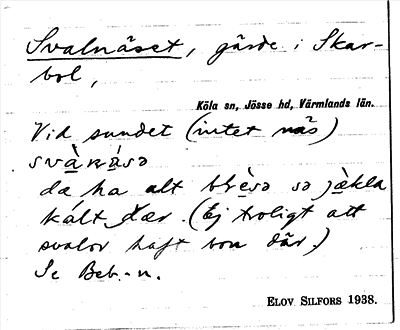 Svalnäset, gärde i Skar-
bol,
Köla sn, Jösse hd, Värmlands län.
Vid sundet (intet näs)
svàná̱sə
da ha alt blè̱sə sə jæ̀kla
kált dær. (Ej troligt att
svalor haft bon där.)
Se Beb.-n.
ELOV SILFORS 1938.